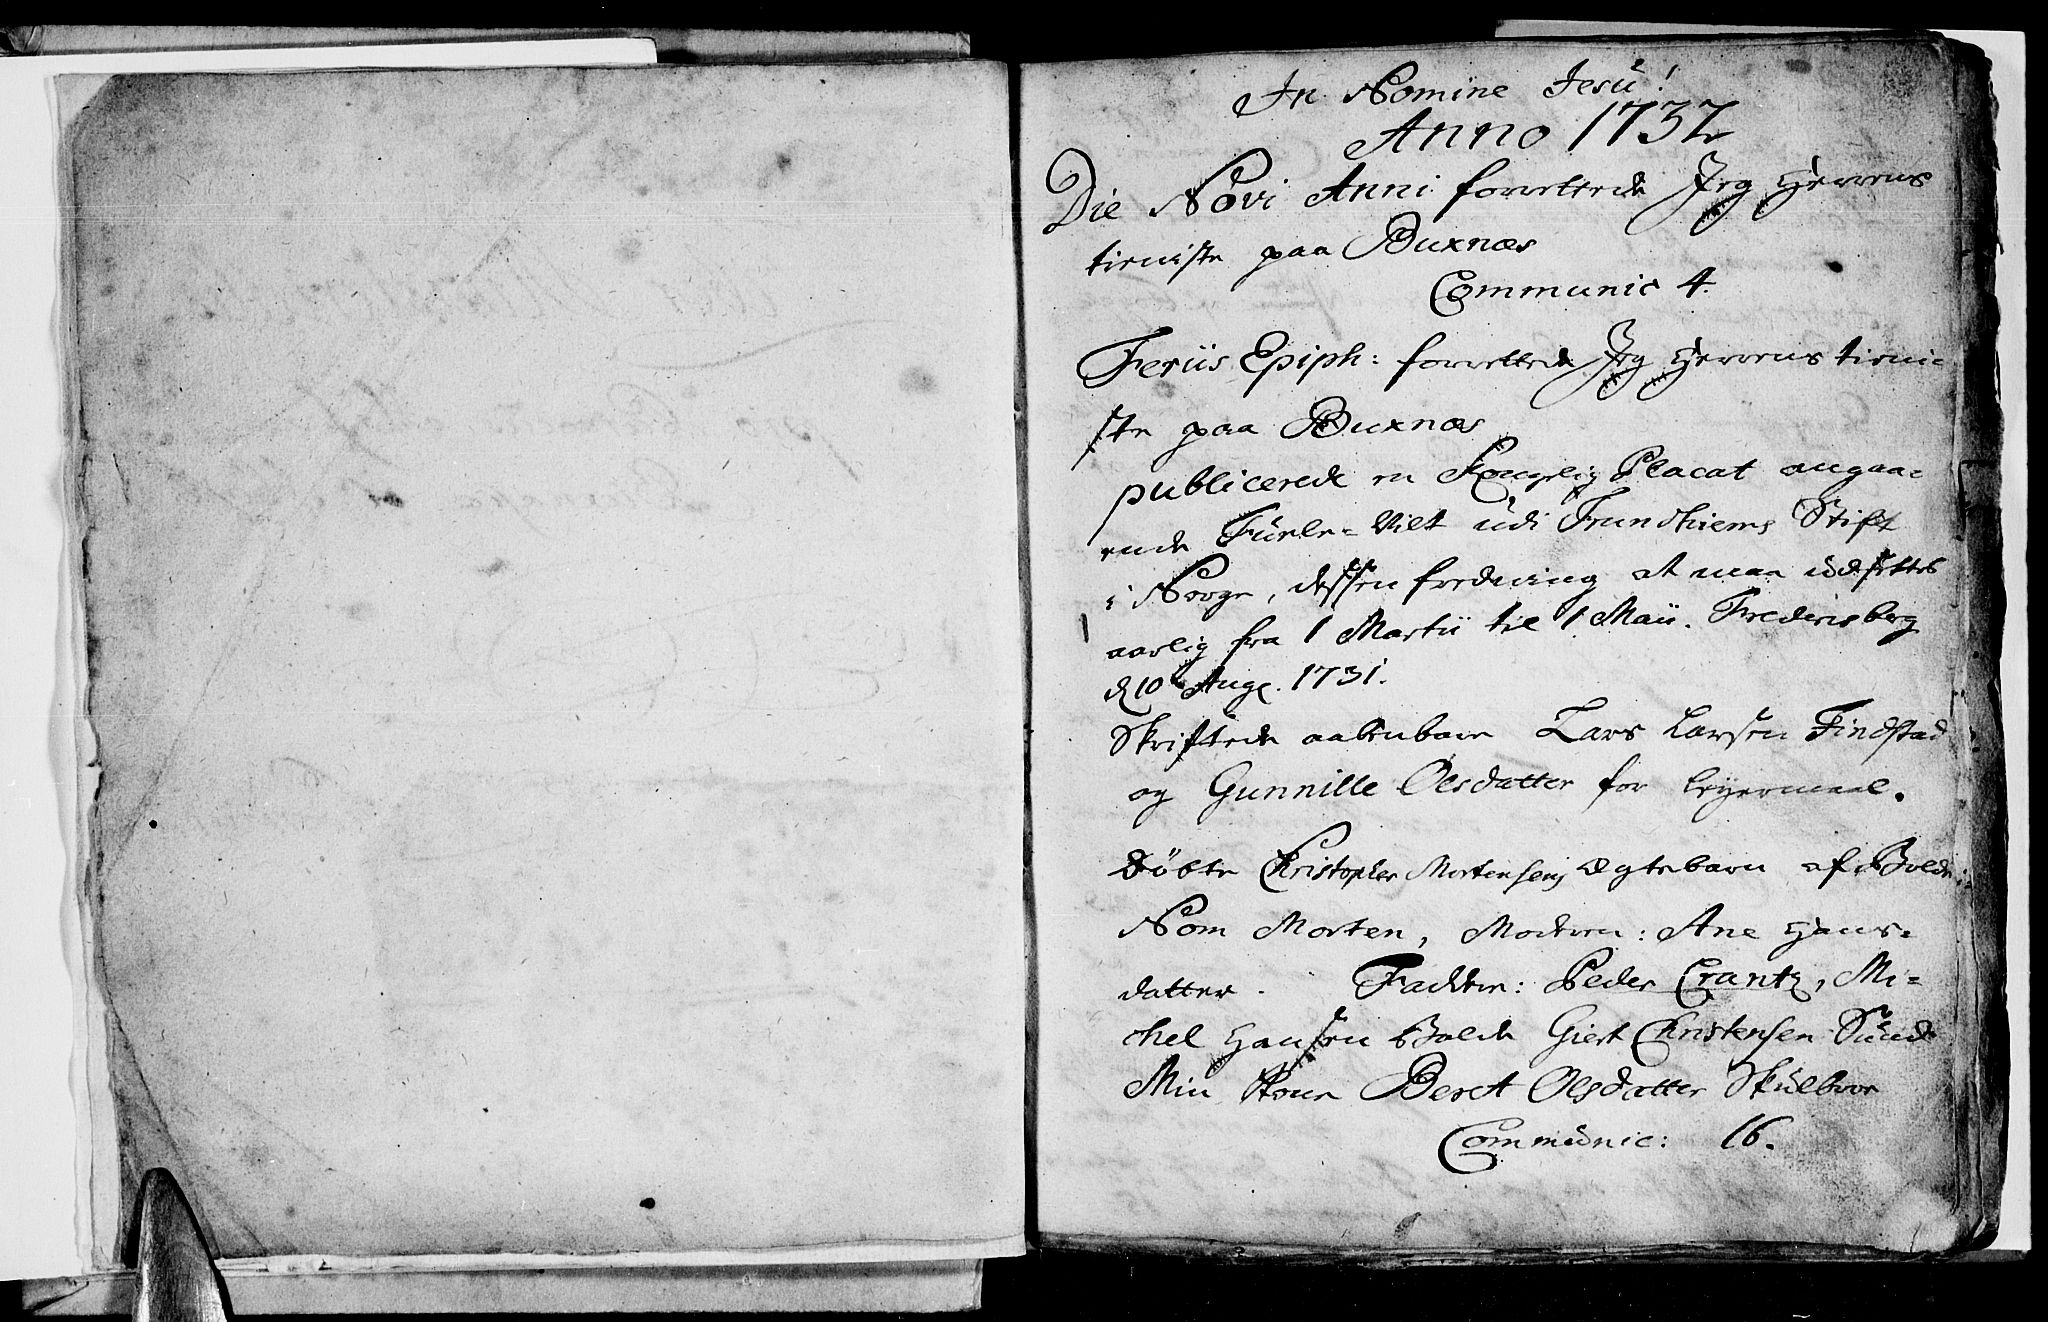 In Nomine Jesu!
Anno 1732
Die Novi Anni forrettede Jeg Herrens
tieniste paa Buxnæs
Communic 4.
Feriis Epiph: forrettede Jeg Herrens tieni-
ste paa Buxnæs
publicerede en Kongelig Placat angaa-
ende Fuele-Vilt udi Trundhiems Stift
i Norge, dessen fredning at maa udsettes
aarlig fra 1 Martii til 1 Maii. Fredericsberg
d 10 Aug. 1731.
Skriftede aabenbare Lars Larsen Findstad
og Gunnille Olsdatter for leyermaal.
Döbte Christopher Mortensens Ægtebarn af Bolde
Nom Morten, Modren: Ane Hans-
datter. Faddere: Peder Crantz, Mi-
chel Hansen Bolde Giert Christensen Sund
Min Kone Beret Olsdatter Skulbror
Communic: 16.